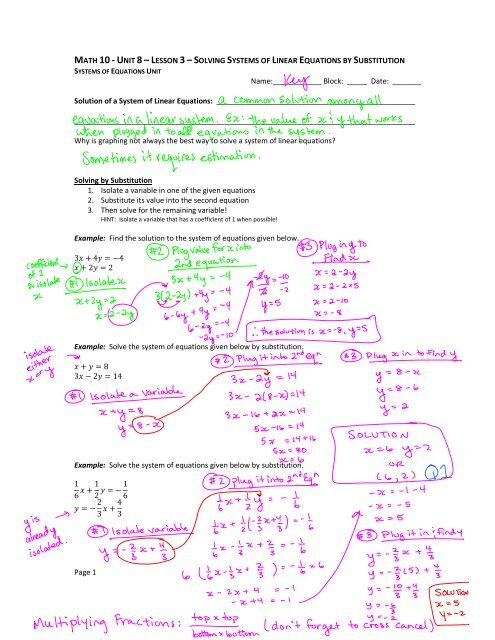 MATH 10 - UNIT 8 – LESSON 3 – SOLVING SYSTEMS OF LINEAR EQUATIONS BY SUBSTITUTION
SYSTEMS OF EQUATIONS UNIT
Name: Key Block: _____ Date: _______
Solution of a System of Linear Equations: a common solution among all
equations in a linear system. Ex: the value of x & y that works
when plugged in to all equations in the system.
Why is graphing not always the best way to solve a system of linear equations?
Sometimes it requires estimation.
Solving by Substitution
1. Isolate a variable in one of the given equations
2. Substitute its value into the second equation
3. Then solve for the remaining variable!
HINT: Isolate a variable that has a coefficient of 1 when possible!
Example: Find the solution to the system of equations given below.
3x + 4y = −4
x + 2y = 2
coefficient
of 1
so isolate
x
#1 Isolate x
x + 2y = 2
x = 2 - 2y
#2 Plug value for x into
2nd equation
3x + 4y = -4
3(2-2y) + 4y = -4
6 - 6y + 4y = -4
6 - 2y = -4
-2y = -10
-2y = -10
-2 -2
y = 5
#3 Plug in y to
Find x
x = 2 - 2y
x = 2 - 2×5
x = 2 - 10
x = -8
∴ the solution is x = -8, y = 5
Example: Solve the system of equations given below by substitution.
x + y = 8
3x − 2y = 14
isolate
either
x or y
#1 Isolate a variable
x + y = 8
y = 8 - x
#2 Plug it into 2nd eqn
3x - 2y = 14
3x - 2(8-x) = 14
3x - 16 + 2x = 14
5x - 16 = 14
5x = 14 + 16
5x = 30
x = 6
#3 Plug x in to find y
y = 8 - x
y = 8 - 6
y = 2
SOLUTION
x = 6 y = 2
OR
(6, 2)
Example: Solve the system of equations given below by substitution.
1/6 x + 1/2 y = − 1/6
y = − 2/3 x + 4/3
y is
already
isolated
#1 Isolate variable
y = -2/3 x + 4/3
#2 plug it into 2nd Eqn
1/6 x + 1/2 y = -1/6
1/6 x + 1/2 (-2/3 x + 4/3) = -1/6
1/6 x - 1/3 x + 2/3 = -1/6
6 (1/6 x - 1/3 x + 2/3) = -1/6 × 6
x - 2x + 4 = -1
-x + 4 = -1
-x = -1 - 4
-x = -5
x = 5
#3 Plug it in; find y
y = -2/3 x + 4/3
y = -2/3 (5) + 4/3
y = -10/3 + 4/3
y = -6/3
y = -2
SOLUTION
x = 5
y = -2
Page 1
Multiplying Fractions: top x top
bottom x bottom
(don't forget to cross cancel)